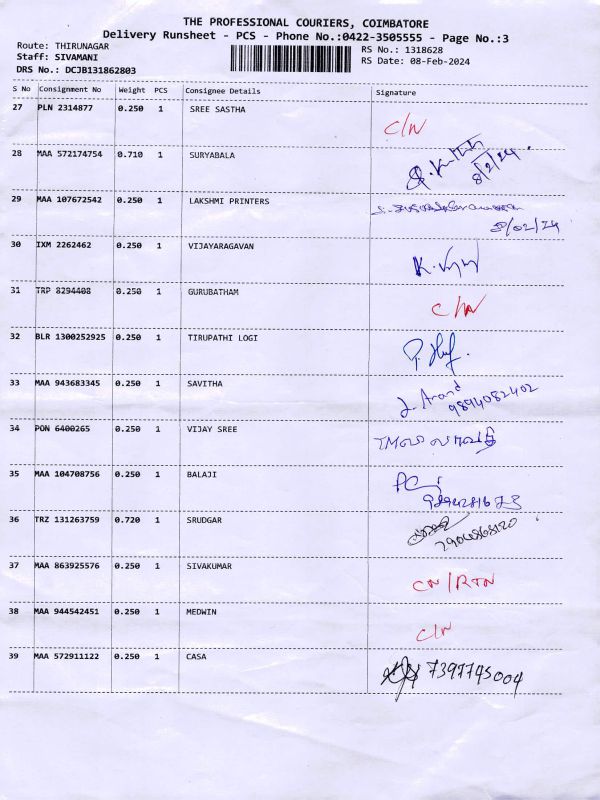 THE PROFESSIONAL COURIERS, COIMBATORE
Delivery Runsheet - PCS - Phone No.:0422-3505555 - Page No.:3
Route: THIRUNAGAR
Staff: SIVAMANI
DRS No.: DCJB131862803
RS No.: 1318628
RS Date: 08-Feb-2024
S No Consignment No Weight PCS Consignee Details Signature
27 PLN 2314877 0.250 1 SREE SASTHA C/N
28 MAA 572174754 0.710 1 SURYABALA 8/2/24.
29 MAA 107672542 0.250 1 LAKSHMI PRINTERS
8/02/24
30 IXM 2262462 0.250 1 VIJAYARAGAVAN
31 TRP 8294408 0.250 1 GURUBATHAM C/N
32 BLR 1300252925 0.250 1 TIRUPATHI LOGI
33 MAA 943683345 0.250 1 SAVITHA J. Anand
9894082402
34 PON 6400265 0.250 1 VIJAY SREE
35 MAA 104708756 0.250 1 BALAJI
36 TRZ 131263759 0.720 1 SRUDGAR
37 MAA 863925576 0.250 1 SIVAKUMAR CN/RTN
38 MAA 944542451 0.250 1 MEDWIN C/N
39 MAA 572911122 0.250 1 CASA 7397745004